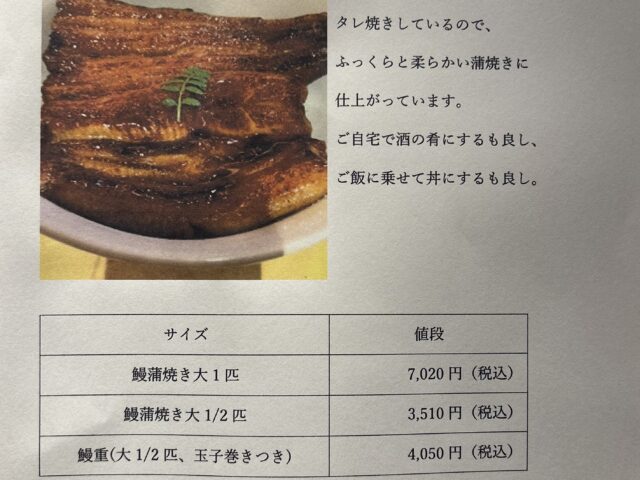 タレ焼きしているので、
ふっくらと柔らかい蒲焼きに
仕上がっています。
ご自宅で酒の肴にするも良し、
ご飯に乗せて丼にするも良し。
サイズ 値段
鰻蒲焼き大1匹 7,020円（税込）
鰻蒲焼き大1/2匹 3,510円（税込）
鰻重(大1/2匹、玉子巻きつき) 4,050円（税込）